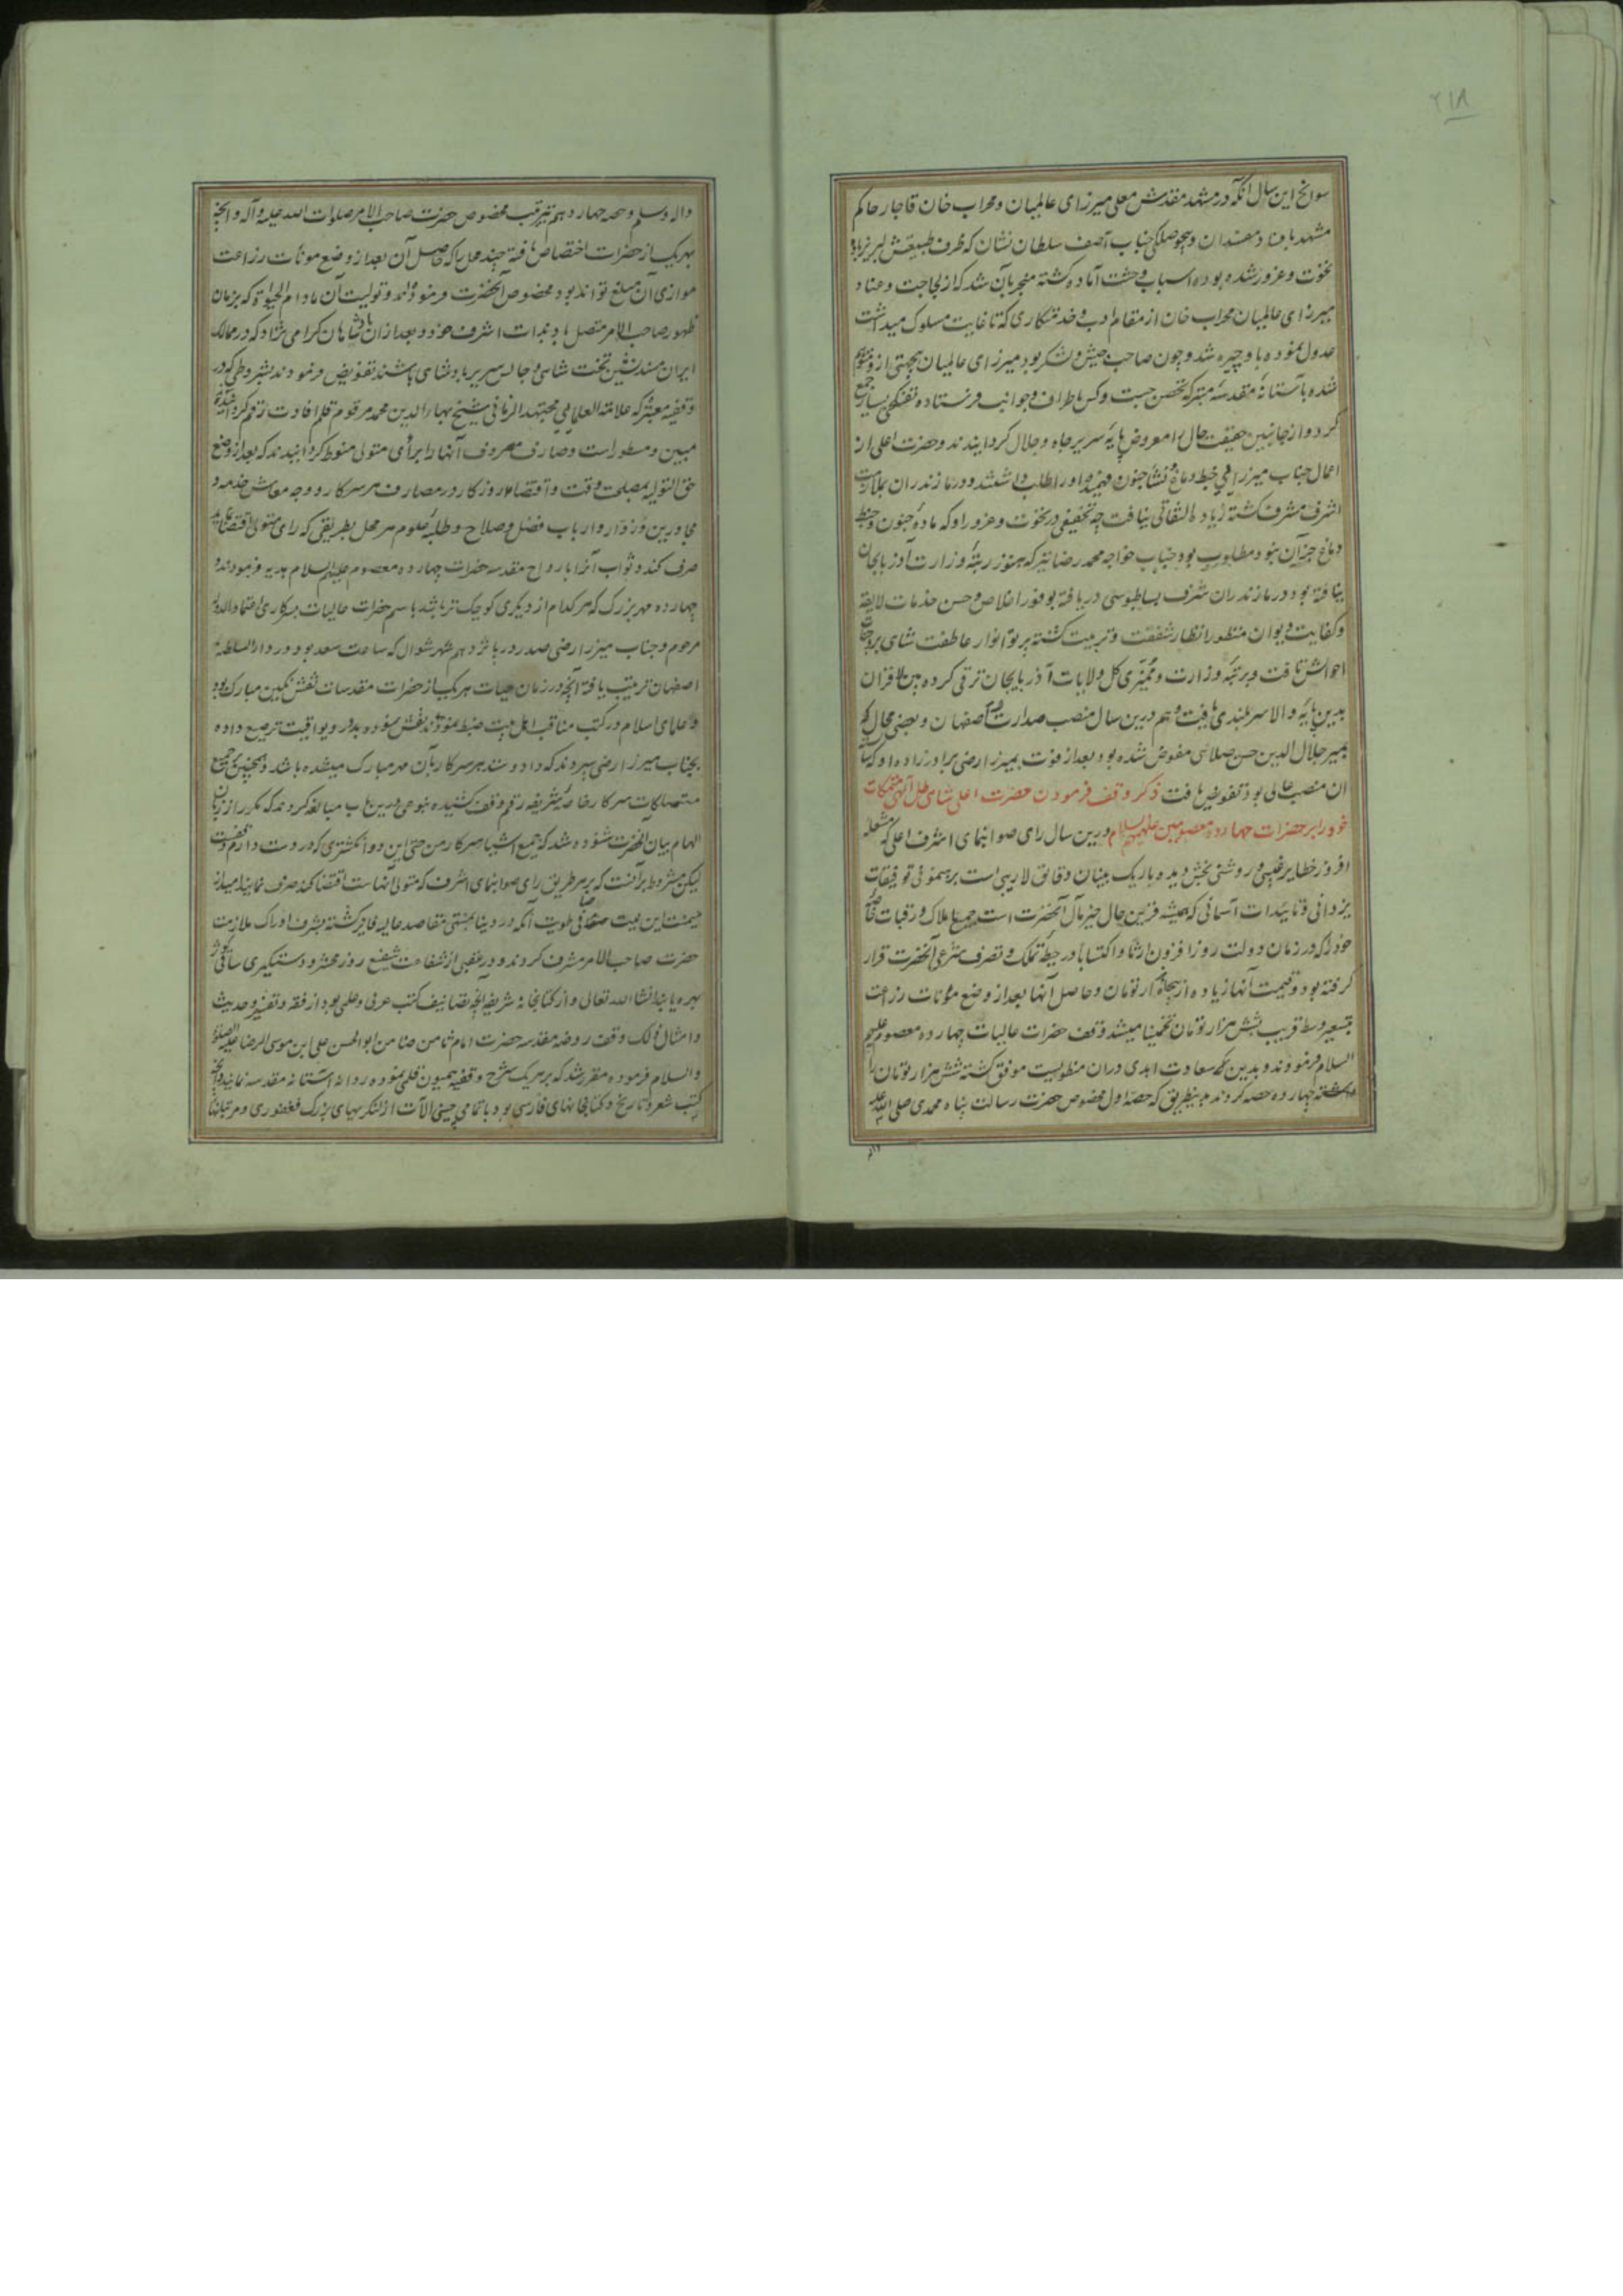 ۲۱۸
سوانح این سال آنکه در مشهد مقدس معلی میرزای عالمیان و محراب خان قاجار حاکم
مشهد بافساد مفسدان و بیحوصلگی جناب آصف سلطان نشان که ظرف طبیعتش لبریز بادهٔ
نخوت و غرور شده بود اسباب وحشت آماده گشته منجر بآن شد که از لجاجت و عناد
میرزای عالمیان محراب خان از مقام ادب و خدمتکاری که تا غایت مسلوک میداشت
عدول نموده با و چیره شد و چون صاحب جیش و لشکر بود میرزای عالمیان بجهتی از و متوهم
شده بآستانهٔ مقدسهٔ متبرکه تحصن جست و کس باطراف و جوانب فرستاده تفنکچی بسیار جمع
کرد و از جانبین حقیقت حال را معروض پایهٔ سریر جاه و جلال کردانیدند و حضرت اعلی از
اعمال جناب میرزایی خبط دماغ و نشأ جنون فهمیده او را طلب داشتند و در مازندران بملازمت
اشرف مشرف گشته زیاده التفاتی نیافت چه تخفیفی در نخوت و غرور او که مادهٔ جنون و خبط
دماغ جز آن نبود مطلوب بود و جناب خواجه محمد رضا نیز که هنوز رتبهٔ وزارت آذربایجان
نیافته بود در مازندران شرف بساطبوسی دریافته بوفور اخلاص و حسن خدمات لایقه
و کفایت دیوان منظور انظار شفقت و تربیت گشته پرتو انوار عاطفت شاهی بر وجنات
احوالش تافت و برتبهٔ وزارت و ممیزی کل ولایات آذربایجان ترقی کرده بین الاقران
بدین پایهٔ والا سربلندی یافت و هم درین سال منصب صدارت اصفهان و بعضی محال که
بمیر جلال الدین حسن صلائی مفوض شده بود بعد از فوت بمیرزا رضی برادرزاده او که شایستهٔ
آن منصب عالی بود تفویض یافت ذکر وقف فرمودن حضرت اعلی شاهی ظل آلهی متملکات
خود را بر حضرات چهارده معصومین علیهم السلام درین سال رای صوابنمای اشرف اعلی که مشعله
افروز خطایر غیبی و روشنی بخش دیده باریک بینان دقایق لاریبی است برهنمونی توفیقات
یزدانی و تاییدات آسمانی که همیشه قرین حال خیر مآل آنحضرت است جمیع املاک و رقبات خاصهٔ
خود را که در زمان دولت روزافزون ارثا و اکتسابا در حیطهٔ تملک و تصرف شرعی آنحضرت قرار
گرفته بود و قیمت آنها زیاده از هزار تومان و حاصل آنها بعد از وضع مؤنات زراعت
بتسعیر وسط قریب بشش هزار تومان تخمینا میشد وقف حضرات عالیات چهارده معصوم علیهم
السلام فرمودند و بدین که سعادت ابدی دران منطویست موفق گشته شش هزار تومان را
چهارده حصه کردند بدینطریق که حصهٔ اول مخصوص حضرت رسالت پناه محمدی صلی الله علیه
واله
واله وسلم و حصه چهاردهم بترتیب مخصوص حضرت صاحب الامر صلوات الله علیه وآله و آنچه
بهریک از حضرات اختصاص یافته چند محل را که حاصل آن بعد از وضع مؤنات زراعت
موازی آن مبلغ تواند بود مخصوص آنحضرت فرموده‌اند و تولیت آن مادام الحیوة که بزمان
ظهور صاحب الامر متصل باد بذات اشرف خود و بعد از ان بپادشاهان گرامی نژاد که در ممالک
ایران مسندنشین تخت شاهی و جالس سریر پادشاهی باشند تفویض فرمودند بشروطی که در
وقفیه معتبره که علامة العلمایی مجتهد الزمانی شیخ بهاءالدین محمد مرقوم قلم افادت رقم کردانیده‌اند
مبین و مسطور است و مصارف موقوف آنها را برأی متولی منوط گردانیدند که بعد از وضع
حق التولیه بمصلحت وقت و اقتضاء روزگار در مصارف هر سرکار و وجه معاش خدمه و
مجاورین و زوار و ارباب فضل و صلاح و طلبهٔ علوم هر محل بطریقی که رای متولی اقتضا نماید
صرف کند و ثواب آنرا بارواح مقدسه حضرات چهارده معصوم علیهم السلام هدیه فرمودند و
چهارده مهر بزرک که هر کدام از دیگری کوچک تر باشد باسم حضرات عالیات بسرکاری اعتماد الدوله
مرحوم و جناب میرزا رضی صدر در پانزدهم شهر شوال که ساعت سعد بود در دار السلطنه
اصفهان ترتیب یافته آنچه در زمان حیات هریک از حضرات مقدسات نقش نگین مبارک بود
و علمای اسلام در کتب مناقب اهل بیت ضبط نموده‌اند نقش نموده بدرر و یواقیت ترصیع داده
بجناب میرزا رضی سپردند که داد و ستد هر سرکار بآن مهر مبارک میشده باشد و همچنین جمیع
متملکات سرکار خاصهٔ شریفه رقم وقف کشیده بنوعی درین باب مبالغه کردند که مکرر از زبان
الهام بیان آنحضرت شنوده شد که جمیع اشیاء سرکار من حتی این دو انگشتری که در دست دارم وقفست
لیکن مشروط بر آنست که بهر طریق رای صوابنمای اشرف که متولی آنهاست اقتضا کند صرف نماید امید از
میمنت این نیت صافی طویت آنکه در دنیا بمنتهی مقاصد عالیه فایز گشته بشرف ادراک ملازمت
حضرت صاحب الامر مشرف کردند و در عقبی از شفاعت شفیع روز محشر و دستگیری ساقی کوثر
بهره یابند انشاالله تعالی و از کتابخانهٔ شریفه آنچه تصانیف کتب عربی و علمی بود از فقه و تفسیر و حدیث
و امثال ذلک وقف روضه مقدسه حضرت امام ثامن ضامن ابوالحسن علی ابن موسی الرضا علیه الصلوة
والسلام فرموده مقرر شد که بر هر یک شرح وقفیه همیون قلمی نموده روانه آستانه مقدسه نمایند و آنچه
کتب شعر و تاریخ و کتابهای فارسی بود با تمامی چینی آلات از لنگریهای بزرک فغفوری و مرتبانها